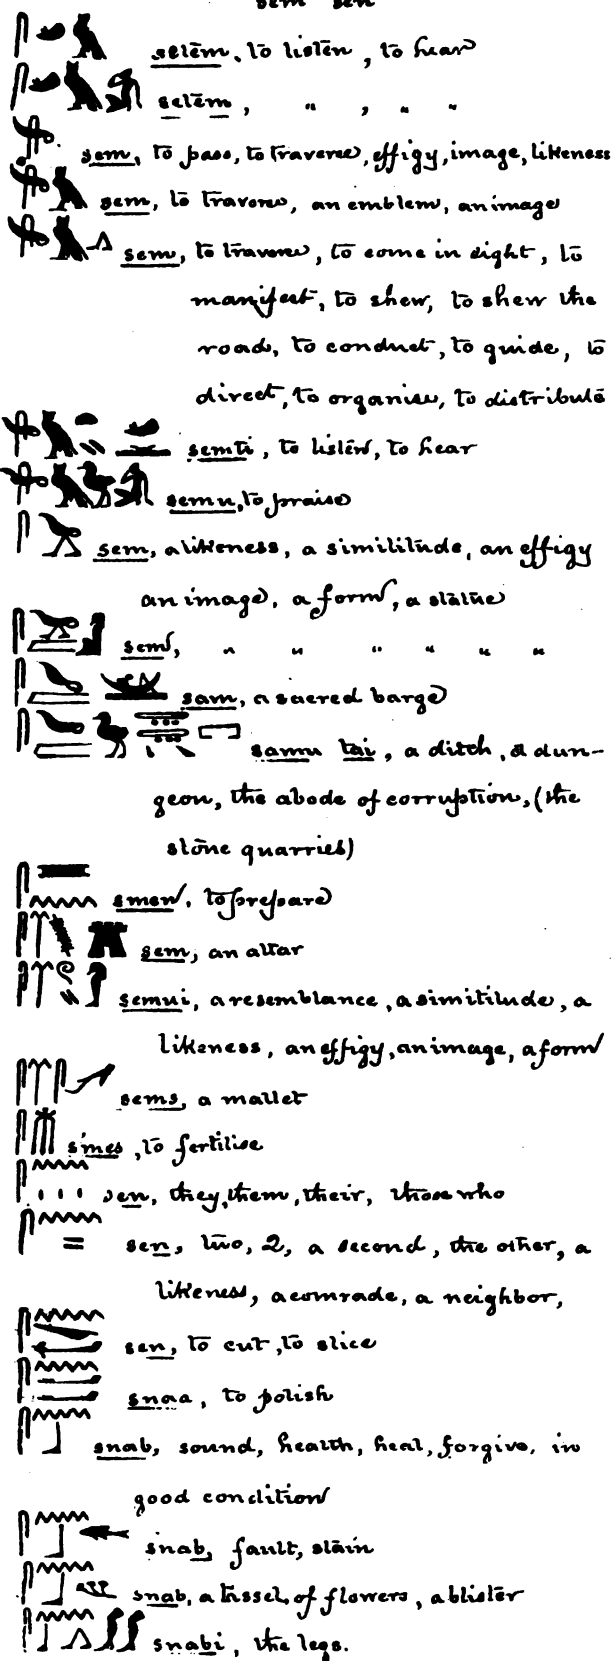 sem sen
setem, to listen, to hear
setem, " , " "
sem, to pass, to traverse, effigy, image, likeness
sem, to traverse, an emblem, an image
sem, to traverse, to come in sight, to
manifest, to shew, to shew the
road, to conduct, to guide, to
direct, to organise, to distribute
semti, to listen, to hear
semu, to praise
sem, a likeness, a similitude, an effigy
an image, a form, a statue
sem, " " " " " "
sam, a sacred barge
samu tai, a ditch, a dun-
geon, the abode of corruption, (the
stone quarries)
smen, to prepare
sem, an altar
semui, a resemblance, a similitude, a
likeness, an effigy, an image, a form
sems, a mallet
smes, to fertilise
sen, they, them, their, those who
sen, two, 2, a second, the other, a
likeness, a comrade, a neighbor,
sen, to cut, to slice
snaa, to polish
snab, sound, health, heal, forgive, in
good condition
snab, fault, stain
snab, a tassel of flowers, a blister
snabi, the legs.